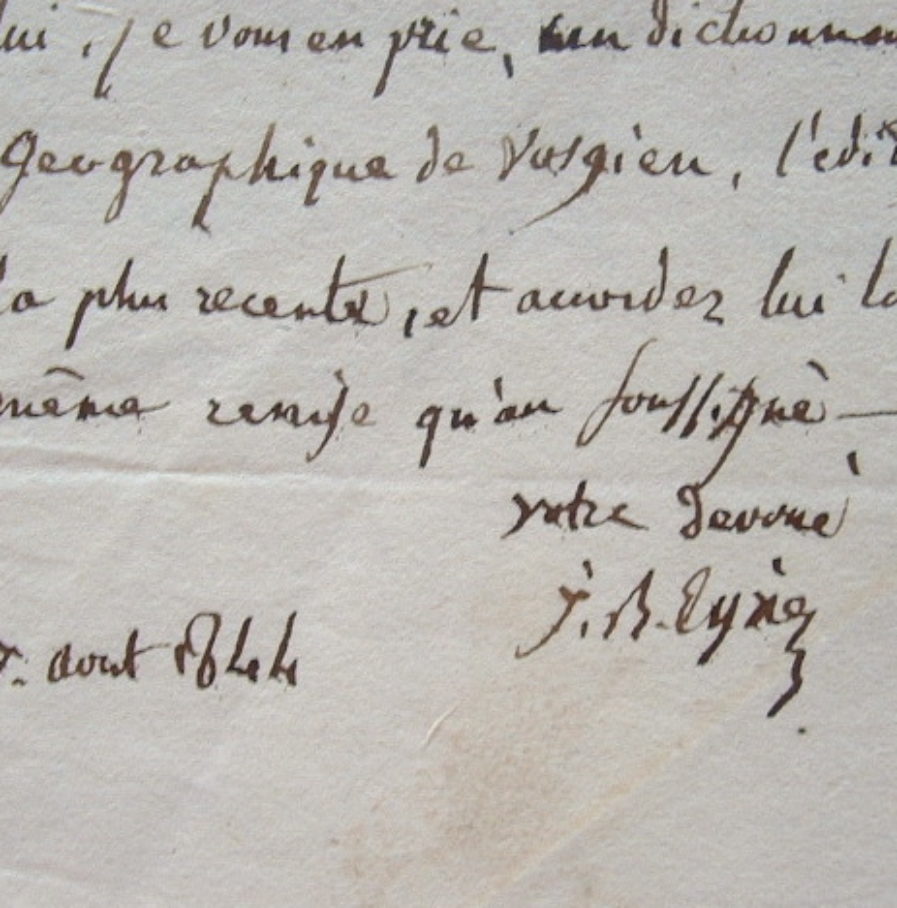 lui, je vous en prie, un dictionna
Geographique de Vosgien, l'edit
la plus recente, et accordez lui la
même remise qu'au soussigné
votre devoué
J. B. Eyriès
août 1844